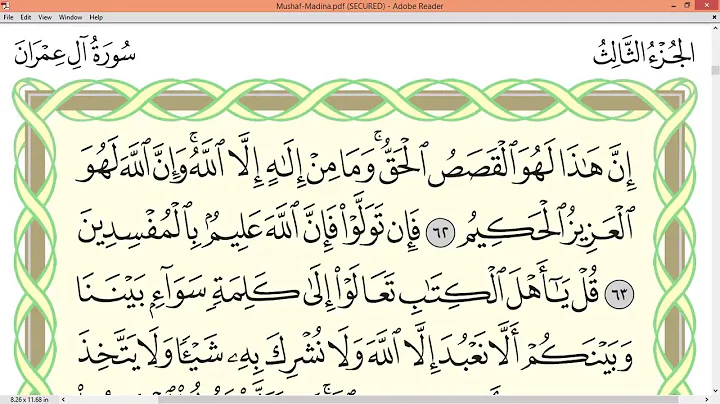 Mushaf-Madina.pdf (SECURED) - Adobe Reader
File Edit View Window Help
الجُزْءُ الثَّالِثُ
سُورَةُ آلِ عِمْرَانَ
إِنَّ هَٰذَا لَهُوَ ٱلْقَصَصُ ٱلْحَقُّۚ وَمَا مِنْ إِلَٰهٍ إِلَّا ٱللَّهُۚ وَإِنَّ ٱللَّهَ لَهُوَ
ٱلْعَزِيزُ ٱلْحَكِيمُ ٦٢ فَإِن تَوَلَّوْا۟ فَإِنَّ ٱللَّهَ عَلِيمٌۢ بِٱلْمُفْسِدِينَ
٦٣ قُلْ يَٰٓأَهْلَ ٱلْكِتَٰبِ تَعَالَوْا۟ إِلَىٰ كَلِمَةٍ سَوَآءٍۭ بَيْنَنَا
وَبَيْنَكُمْ أَلَّا نَعْبُدَ إِلَّا ٱللَّهَ وَلَا نُشْرِكَ بِهِۦ شَيْـًٔا وَلَا يَتَّخِذَ
8.26 x 11.68 in